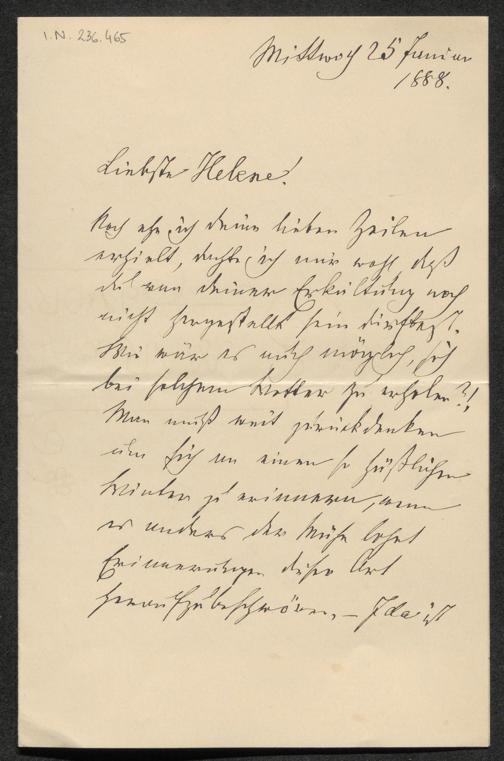 I.N. 236.465
Mittwoch 25 Januar
1888.
Liebste Helene!
Noch ehe ich deine lieben Zeilen
erhielt, dachte ich mir wohl daß
du von deiner Erkältung noch
nicht hergestellt sein dürftest.
Wie wär es auch möglich, sich
bei solchem Wetter zu erholen?!
Man muß weit zurückdenken
um sich an einen so häßlichen
Winter zu erinnern, wenn
es anders der Mühe lohnt
Erinnerungen dieser Art
heraufzubeschwören. – Ida ist